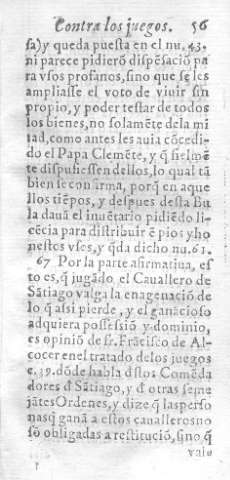 Contra los juegos. 56
sa) y queda puesta en el nu. 43.
ni parece pidierõ dispẽsaciõ pa
ra vsos profanos, sino que se les
ampliasse el voto de viuir sin
propio, y poder testar de todos
los bienes, no solamẽte dela mi
tad, como antes les auia cõcedi-
do el Papa Clemẽte, y q̃ fielmẽ
te dispusiessen dellos, lo qual tã
bien se confirma, porq̃ en aque
llos tiẽpos, y despues desta Bu
la dauã el inuẽtario pidiẽdo li-
cẽcia para distribuir ẽ pios y ho
nestos vses, y q̃da dicho nu. 61.
67 Por la parte afirmatiua, es
to es, q̃ jugãdo el Cauallero de
Sãtiago valga la enagenaciõ de
lo q̃ assi pierde, y el ganacioso
adquiera possessiõ y dominio,
es opiniõ de fr. Frãcisco de Al-
cocer enel tratado delos juegos
c. 39. dõde habla d̃stos Comẽda
dores d̃ Sãtiago, y d̃ otras seme
jãtes Ordenes, y dize q̃ las perso
nas q̃ ganã a estos caualleros no
sõ obligadas a restituciõ, sino q̃
vale